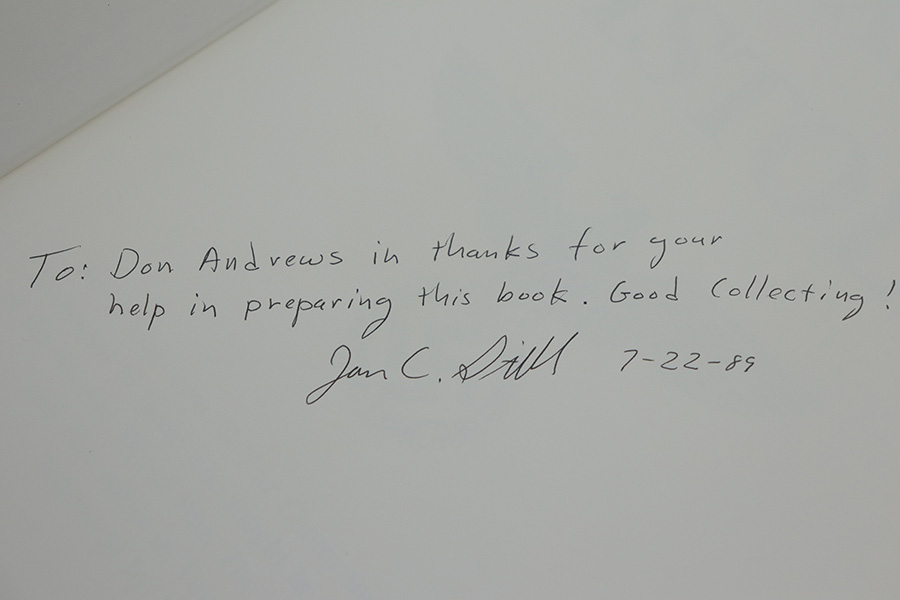 To: Don Andrews in thanks for your
help in preparing this book. Good Collecting!
Jan C. Still 7-22-89